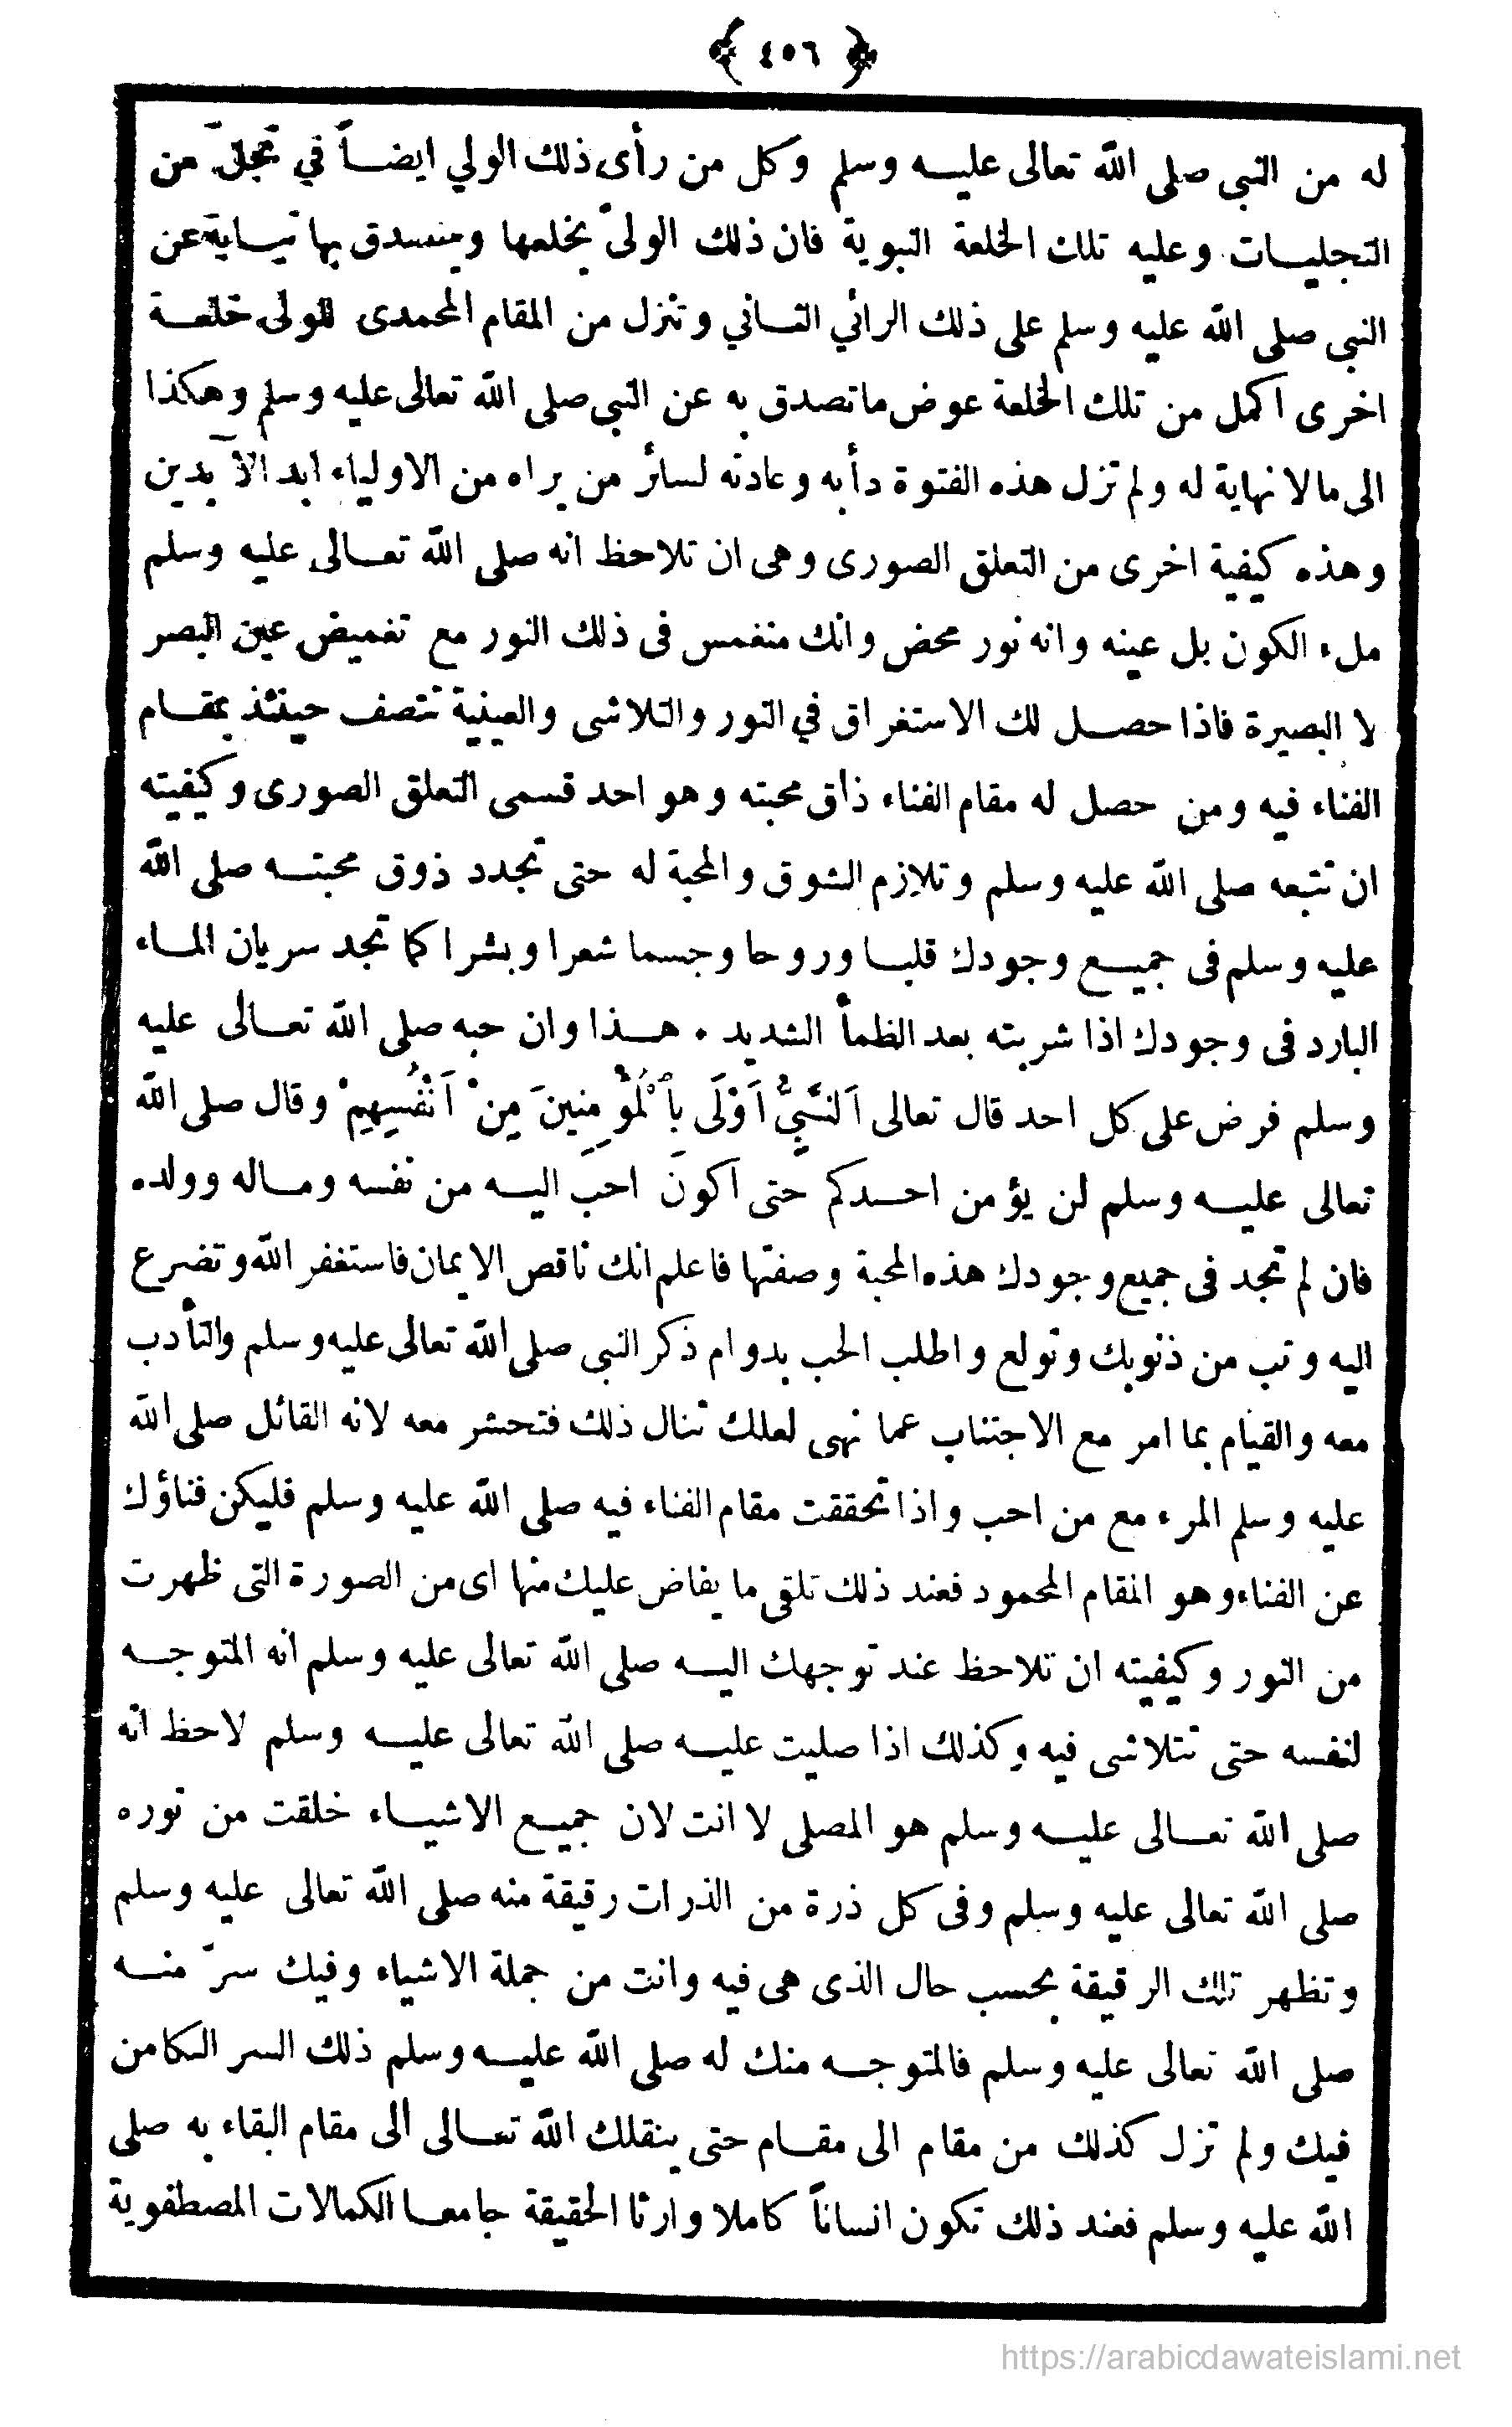 ﴿ ٤٥٦ ﴾
له من النبى صلى الله تعالى عليه وسلم وكل من رأى ذلك الولي ايضاً في تجلّ من
التجليات وعليه تلك الخلعة النبوية فان ذلك الولىّ يخلعها ويتصدق بها نيابة عن
النبى صلى الله عليه وسلم على ذلك الرائي الثاني وتنزل من المقام المحمدى للولى خلعة
اخرى اكمل من تلك الخلعة عوض ما تصدق به عن النبى صلى الله تعالى عليه وسلم وهكذا
الى ما لا نهاية له ولم تزل هذه الفتوة دأبه وعادته لسائر من يراه من الاولياء ابد الآبدين
وهذه كيفية اخرى من التعلق الصورى وهى ان تلاحظ انه صلى الله تعالى عليه وسلم
ملء الكون بل عينه وانه نور محض وانك منغمس فى ذلك النور مع تغميض عين البصر
لا البصيرة فاذا حصل لك الاستغراق في النور والتلاشى والعينية تتصف حينئذ بمقام
الفناء فيه ومن حصل له مقام الفناء ذاق محبته وهو احد قسمى التعلق الصورى وكيفيته
ان تتبعه صلى الله عليه وسلم وتلازم الشوق والمحبة له حتى تجدد ذوق محبته صلى الله
عليه وسلم فى جميع وجودك قلبا وروحا وجسما شعرا وبشرا كما تجد سريان الماء
البارد فى وجودك اذا شربته بعد الظمأ الشديد ٠ هذا وان حبه صلى الله تعالى عليه
وسلم فرض على كل احد قال تعالى اَلنَّبِيُّ اَوْلَى بِالْمُؤْمِنِينَ مِنْ اَنْفُسِهِمْ وقال صلى الله
تعالى عليه وسلم لن يؤمن احدكم حتى اكون احب اليه من نفسه وماله وولده
فان لم تجد فى جميع وجودك هذه المحبة وصفتها فاعلم انك ناقص الايمان فاستغفر الله وتضرع
اليه وتب من ذنوبك وتولع واطلب الحب بدوام ذكر النبى صلى الله تعالى عليه وسلم والتأدب
معه والقيام بما امر مع الاجتناب عما نهى لعلك تنال ذلك فتحشر معه لانه القائل صلى الله
عليه وسلم المرء مع من احب واذا تحققت مقام الفناء فيه صلى الله عليه وسلم فليكن فناؤك
عن الفناء وهو المقام المحمود فعند ذلك تلقى ما يفاض عليك منها اى من الصورة التى ظهرت
من النور وكيفيته ان تلاحظ عند توجهك اليه صلى الله تعالى عليه وسلم انه المتوجه
لنفسه حتى تتلاشى فيه وكذلك اذا صليت عليه صلى الله تعالى عليه وسلم لاحظ انه
صلى الله تعالى عليه وسلم هو المصلى لا انت لان جميع الاشياء خلقت من نوره
صلى الله تعالى عليه وسلم وفى كل ذرة من الذرات رقيقة منه صلى الله تعالى عليه وسلم
وتظهر تلك الرقيقة بحسب حال الذى هى فيه وانت من جملة الاشياء وفيك سرّ منه
صلى الله تعالى عليه وسلم فالمتوجه منك له صلى الله عليه وسلم ذلك السر الكامن
فيك ولم تزل كذلك من مقام الى مقام حتى ينقلك الله تعالى الى مقام البقاء به صلى
الله عليه وسلم فعند ذلك تكون انساناً كاملا وارثا الحقيقة جامعا الكمالات المصطفوية
https://arabicdawateislami.net